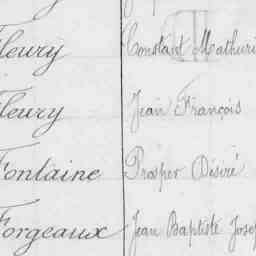 Fleury Constant Mathuri
Fleury Jean François
Fontaine Prosper Désiré
Forgeaux Jean Baptiste Jose